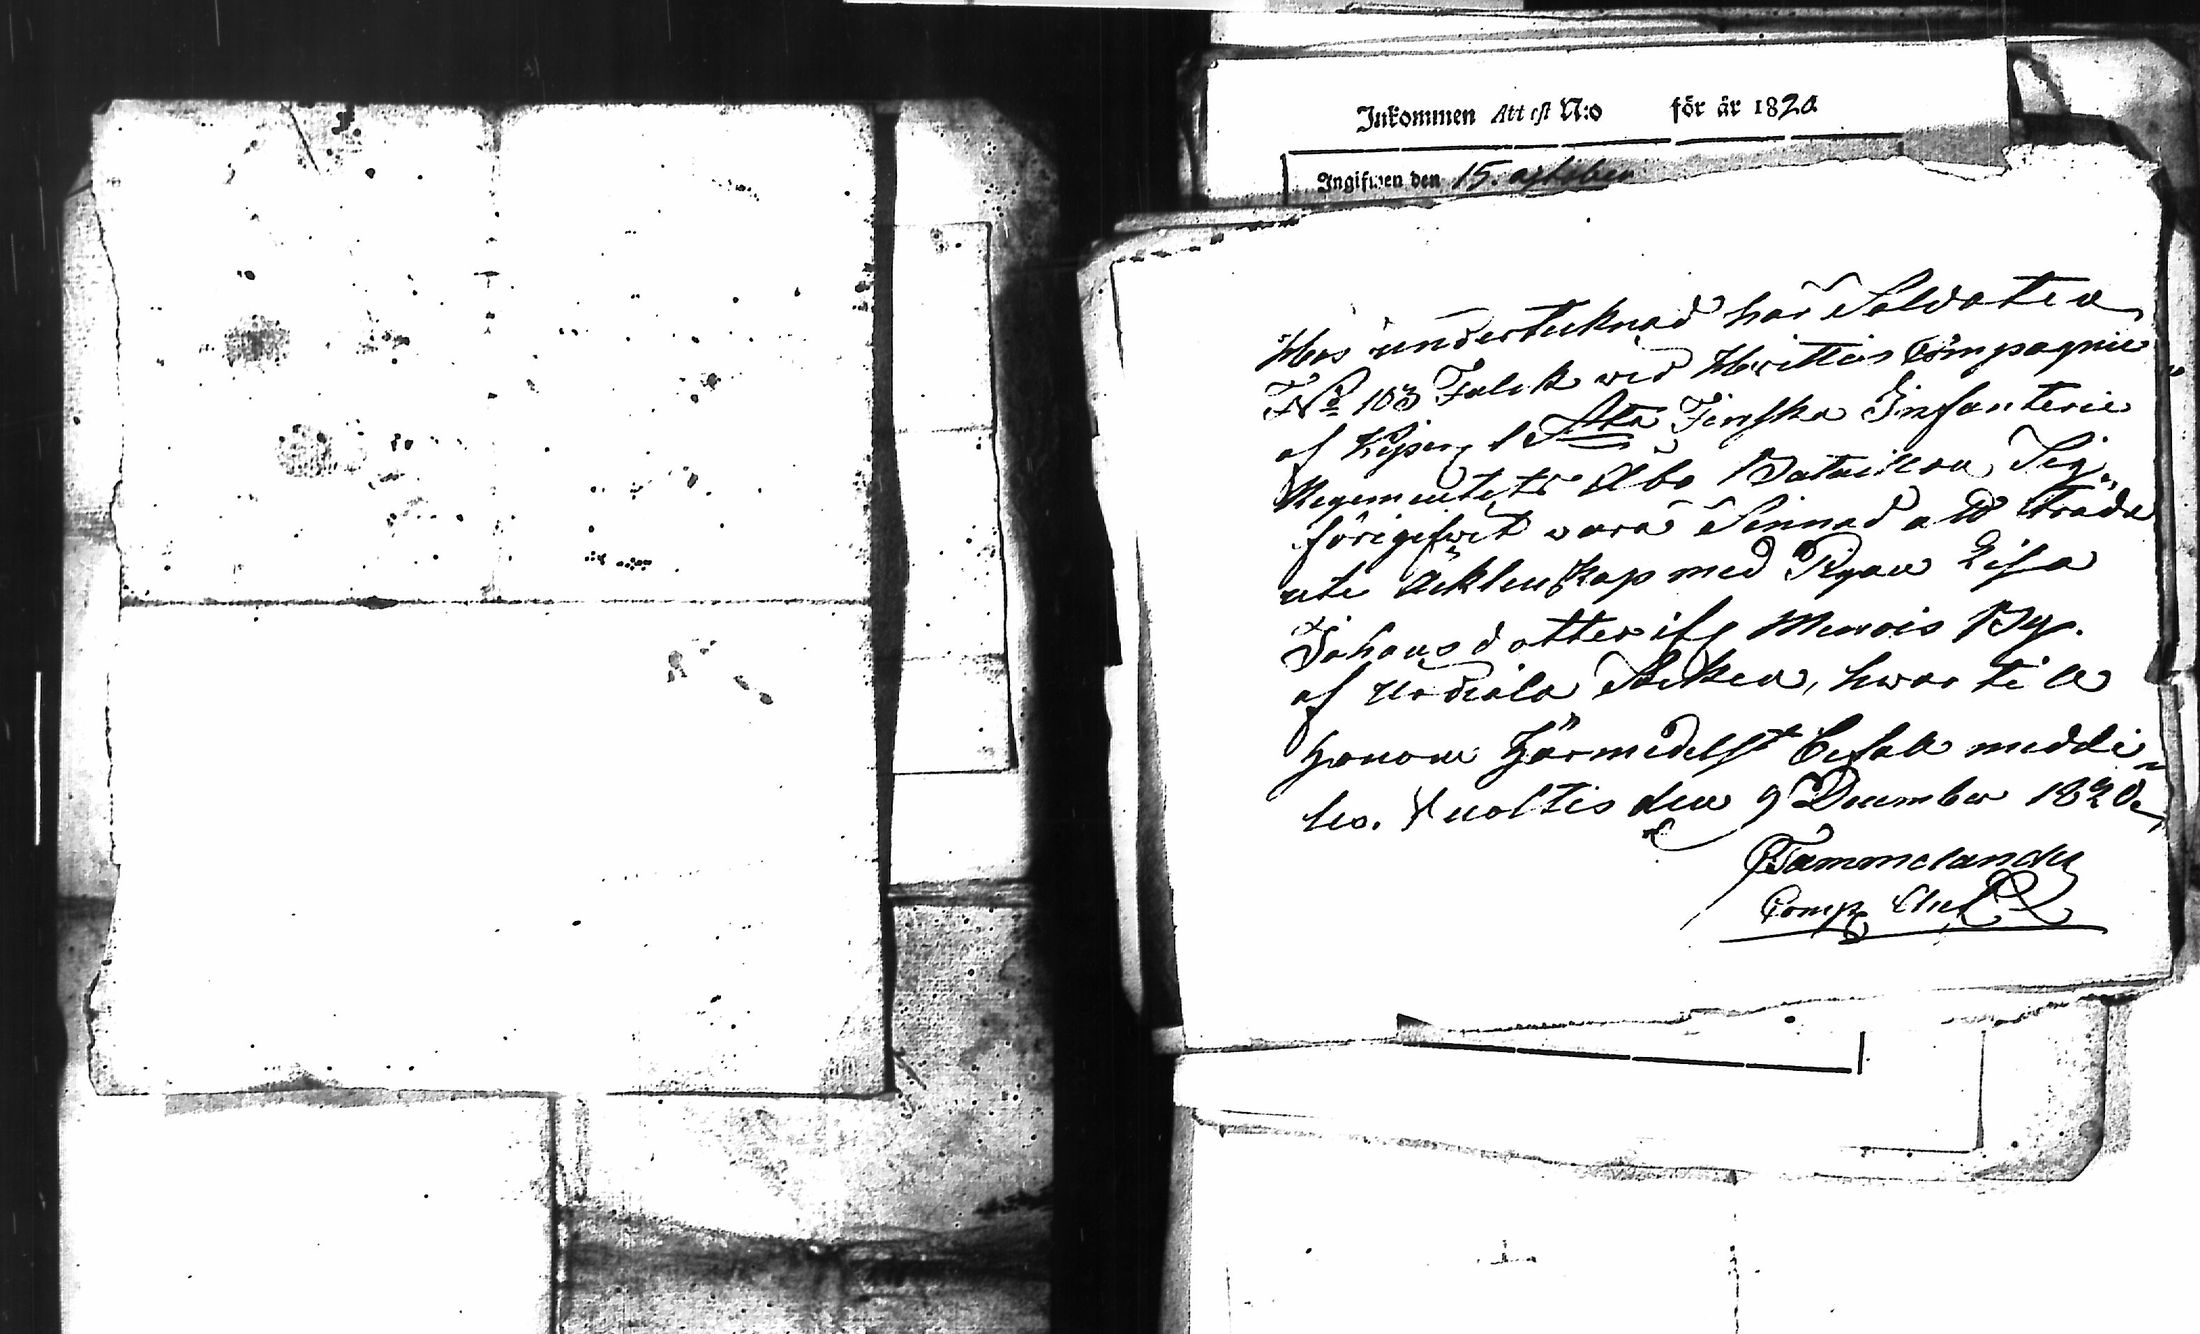 Inkommen Attest N:o för år 1820
Ingifwen den 15. october
Hos undertecknad har Soldaten
No 103 Falck wid Hvittis Compagnie
af Kejserl 1sta Finska Infanterie
Regementets Åbo Bataillon, Sig
förigifwit wara Sinnad att träda
uti Äcktenskap med Pigan Lisa
Johansdotter ifr Menois By
af Urdiala Sokn, hwartill
honom härmedelst Bifall medde-
les. den 9 December 1820.
Tammelander
Comp Chef